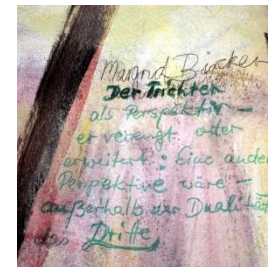 Manfred Bincker
Der Trichter
als Perspektiv –
er verengt oder
erweitert: Eine ander
Perspektive wäre –
außerhalb der Dualität
das Dritte